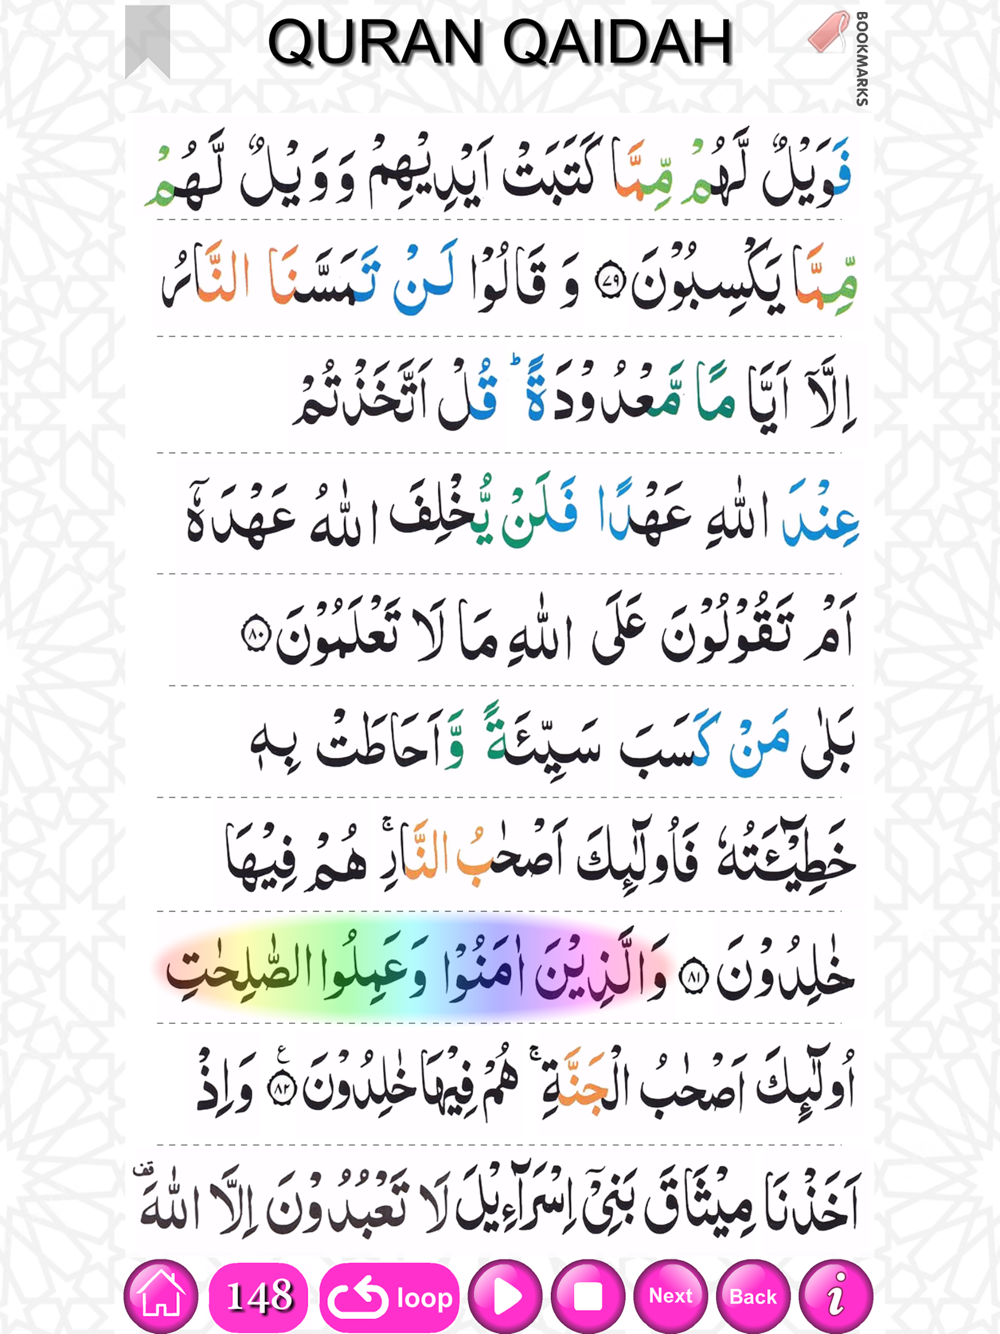 QURAN QAIDAH
BOOKMARKS
فَوَيْلٌ لَّهُمْ مِّمَّا كَتَبَتْ اَيْدِيْهِمْ وَ وَيْلٌ لَّهُمْ
مِّمَّا يَكْسِبُوْنَ ﴿٧٩﴾ وَ قَالُوْا لَنْ تَمَسَّنَا النَّارُ
اِلَّاۤ اَيَّا مًا مَّعْدُوْدَةً ؕ قُلْ اَتَّخَذْتُمْ
عِنْدَ اللّٰهِ عَهْدًا فَلَنْ يُّخْلِفَ اللّٰهُ عَهْدَهٗۤ
اَمْ تَقُوْلُوْنَ عَلَى اللّٰهِ مَا لَا تَعْلَمُوْنَ ﴿٨٠﴾
بَلٰى مَنْ كَسَبَ سَيِّئَةً وَّ اَحَاطَتْ بِهٖ
خَطِيْٓـَٔتُهٗ فَاُولٰٓئِكَ اَصْحٰبُ النَّارِ ۚ هُمْ فِيْهَا
خٰلِدُوْنَ ﴿٨١﴾ وَالَّذِيْنَ اٰمَنُوْا وَ عَمِلُوا الصّٰلِحٰتِ
اُولٰٓئِكَ اَصْحٰبُ الْجَنَّةِ ۚ هُمْ فِيْهَا خٰلِدُوْنَ ﴿٨٢﴾ ع وَ اِذْ
اَخَذْنَا مِيْثَاقَ بَنِىْۤ اِسْرَآءِيْلَ لَا تَعْبُدُوْنَ اِلَّا اللّٰهَ قف
148 loop Next Back i